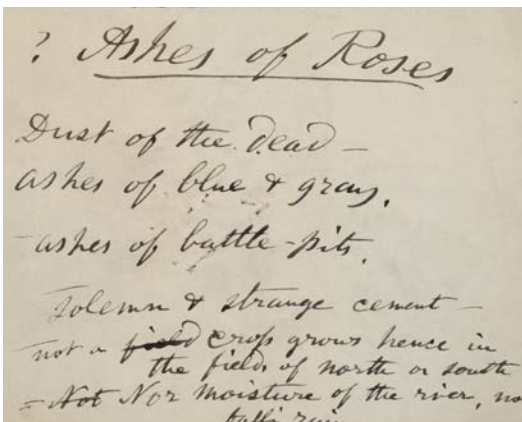 ? Ashes of Roses
Dust of the dead –
ashes of blue & gray,
– ashes of battle-pits,
Solemn & strange cement –
– not a field crop grows hence in
the fields of north or south
– Not Nor moisture of the river, no